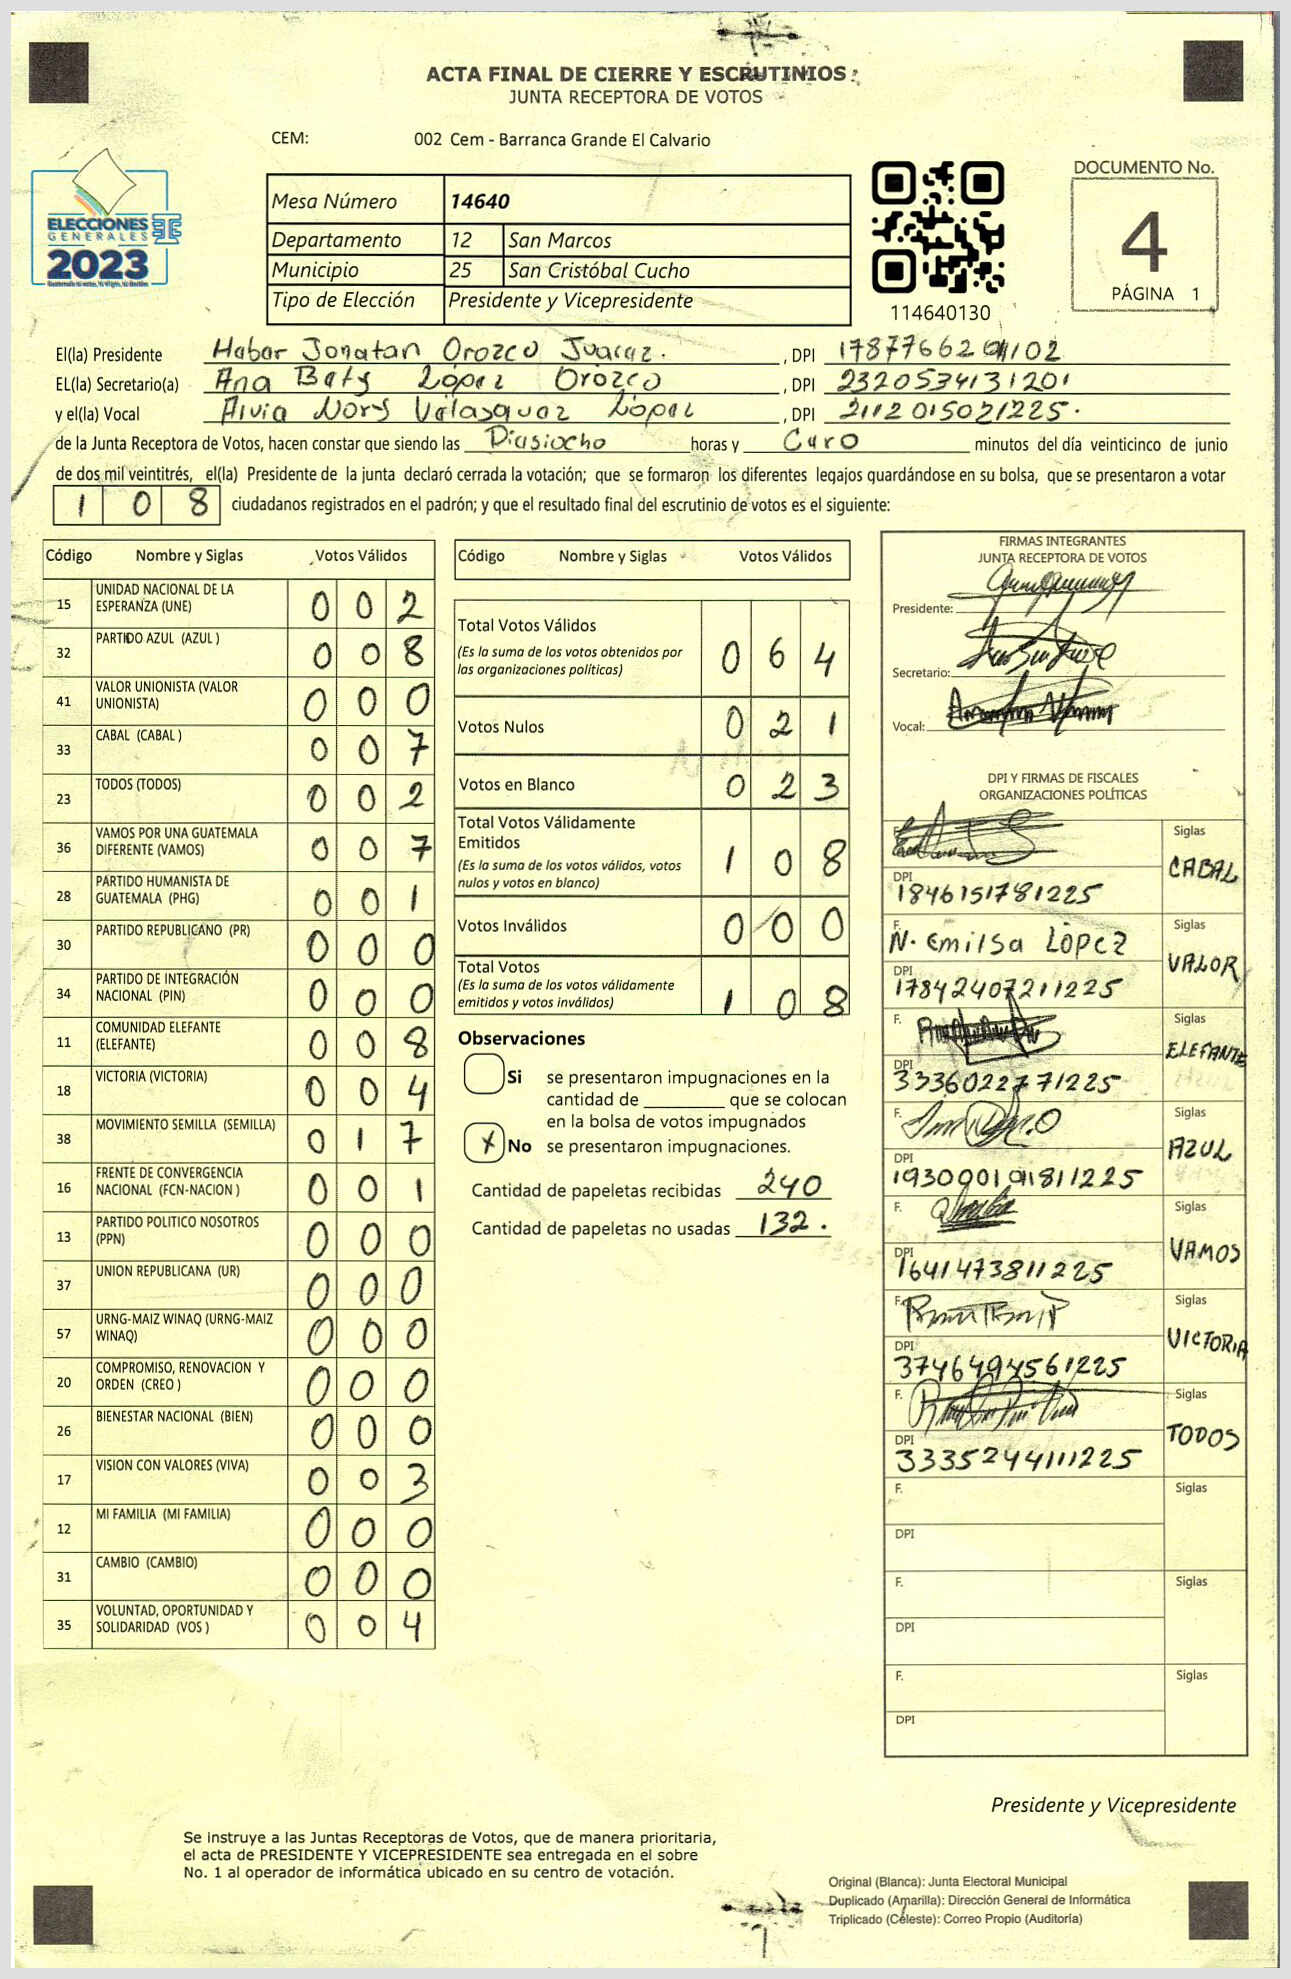 ACTA FINAL DE CIERRE Y ESCRUTINIOS
JUNTA RECEPTORA DE VOTOS
CEM: 002 Cem - Barranca Grande El Calvario
ELECCIONES
GENERALES
2023
Mesa Número 14640
Departamento 12 San Marcos
Municipio 25 San Cristóbal Cucho
Tipo de Elección Presidente y Vicepresidente
114640130
DOCUMENTO No.
4
PÁGINA 1
El(la) Presidente Habar Jonatan Orozco Juaraz. , DPI
EL(la) Secretario(a) Ana Baty López Orozco , DPI 2320534131201
y el(la) Vocal Alvia Nory Valasquaz López , DPI 2112015021225.
de la Junta Receptora de Votos, hacen constar que siendo las Diasiocho horas y Caro minutos del día veinticinco de junio
de dos mil veintitrés, el(la) Presidente de la junta declaró cerrada la votación; que se formaron los diferentes legajos guardándose en su bolsa, que se presentaron a votar
1 0 8 ciudadanos registrados en el padrón; y que el resultado final del escrutinio de votos es el siguiente:
Código Nombre y Siglas Votos Válidos
15 UNIDAD NACIONAL DE LA ESPERANZA (UNE) 0 0 2
32 PARTIDO AZUL (AZUL ) 0 0 8
41 VALOR UNIONISTA (VALOR UNIONISTA) 0 0 0
33 CABAL (CABAL ) 0 0 7
23 TODOS (TODOS) 0 0 2
36 VAMOS POR UNA GUATEMALA DIFERENTE (VAMOS) 0 0 7
28 PARTIDO HUMANISTA DE GUATEMALA (PHG) 0 0 1
30 PARTIDO REPUBLICANO (PR) 0 0 0
34 PARTIDO DE INTEGRACIÓN NACIONAL (PIN) 0 0 0
11 COMUNIDAD ELEFANTE (ELEFANTE) 0 0 8
18 VICTORIA (VICTORIA) 0 0 4
38 MOVIMIENTO SEMILLA (SEMILLA) 0 1 7
16 FRENTE DE CONVERGENCIA NACIONAL (FCN-NACION ) 0 0 1
13 PARTIDO POLITICO NOSOTROS (PPN) 0 0 0
37 UNION REPUBLICANA (UR) 0 0 0
57 URNG-MAIZ WINAQ (URNG-MAIZ WINAQ) 0 0 0
20 COMPROMISO, RENOVACION Y ORDEN (CREO ) 0 0 0
26 BIENESTAR NACIONAL (BIEN) 0 0 0
17 VISION CON VALORES (VIVA) 0 0 3
12 MI FAMILIA (MI FAMILIA) 0 0 0
31 CAMBIO (CAMBIO) 0 0 0
35 VOLUNTAD, OPORTUNIDAD Y SOLIDARIDAD (VOS ) 0 0 4
Código Nombre y Siglas Votos Válidos
Total Votos Válidos 0 6 4
(Es la suma de los votos obtenidos por
las organizaciones politicas)
Votos Nulos 0 2 1
Votos en Blanco 0 2 3
Total Votos Válidamente
Emitidos 1 0 8
(Es la suma de los votos válidos, votos
nulos y votos en blanco)
Votos Inválidos 0 0 0
Total Votos
(Es la suma de los votos válidamente
emitidos y votos inválidos) 1 0 8
Observaciones
Si se presentaron impugnaciones en la
cantidad de ________ que se colocan
en la bolsa de votos impugnados
X No se presentaron impugnaciones.
Cantidad de papeletas recibidas 240
Cantidad de papeletas no usadas 132.
FIRMAS INTEGRANTES
JUNTA RECEPTORA DE VOTOS
Presidente:
Secretario:
Vocal:
DPI Y FIRMAS DE FISCALES
ORGANIZACIONES POLÍTICAS
F. Siglas
CABAL
DPI
1846151781225
F. Siglas
N. Emilsa López
VALOR
DPI
1784240721225
F. Siglas
ELEFANTE
DPI
3336022771225
F. Siglas
AZUL
DPI
F. Siglas
VAMOS
DPI
1641473811225
F. Siglas
VICTORIA
DPI
3746494561225
F. Siglas
TODOS
DPI
3335244111225
F. Siglas
DPI
F. Siglas
DPI
F. Siglas
DPI
Presidente y Vicepresidente
Se instruye a las Juntas Receptoras de Votos, que de manera prioritaria,
el acta de PRESIDENTE Y VICEPRESIDENTE sea entregada en el sobre
No. 1 al operador de informática ubicado en su centro de votación.
Original (Blanca): Junta Electoral Municipal
Duplicado (Amarilla): Dirección General de Informática
Triplicado (Celeste): Correo Propio (Auditoría)